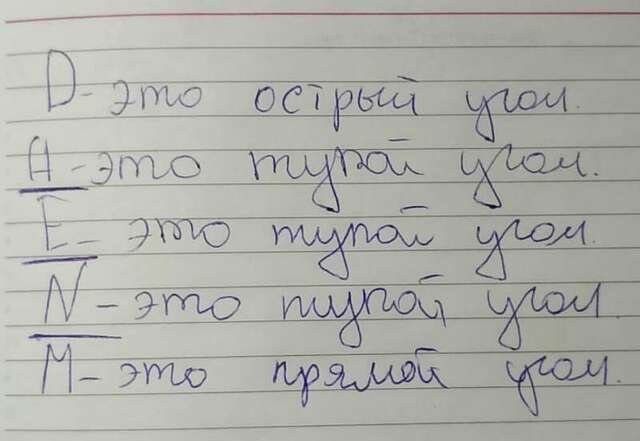 D - это острый угол.
A - это тупой угол.
E - это тупой угол.
N - это тупой угол.
M - это прямой угол.